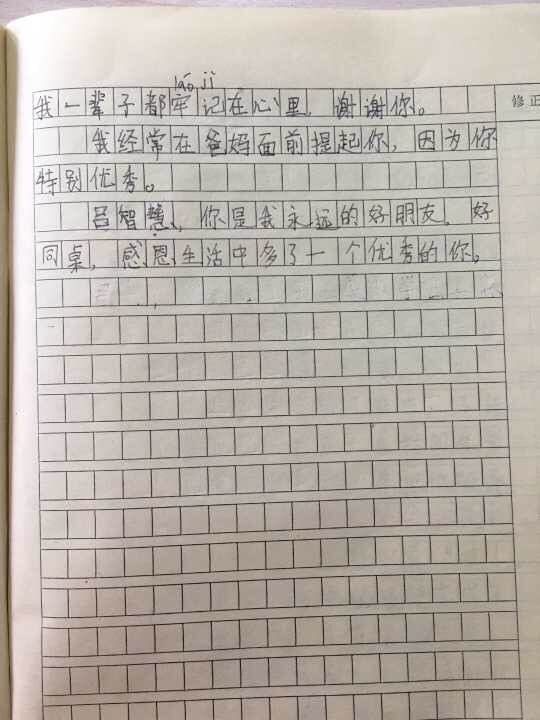 láo jì
我一辈子都牢记在心里，谢谢你。
修正
我经常在爸妈面前提起你，因为你
特别优秀。
吕智慧，你是我永远的好朋友，好
同桌，感恩生活中多了一个优秀的你。